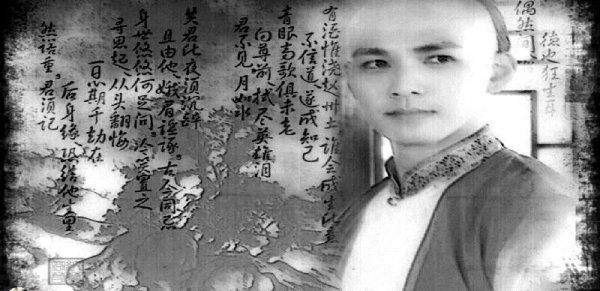 德也狂生耳
偶然间
有酒惟浇赵州土谁会成生此意
不信道遂成知己
青眼高歌俱未老
向尊前拭尽英雄泪
君不见月如水
共君此夜须沉醉
且由他蛾眉谣诼古今同忌
身世悠悠何足问冷笑置之
寻思起从头翻悔
一日心期千劫在
后身缘恐结他生里
然诺重。君须记